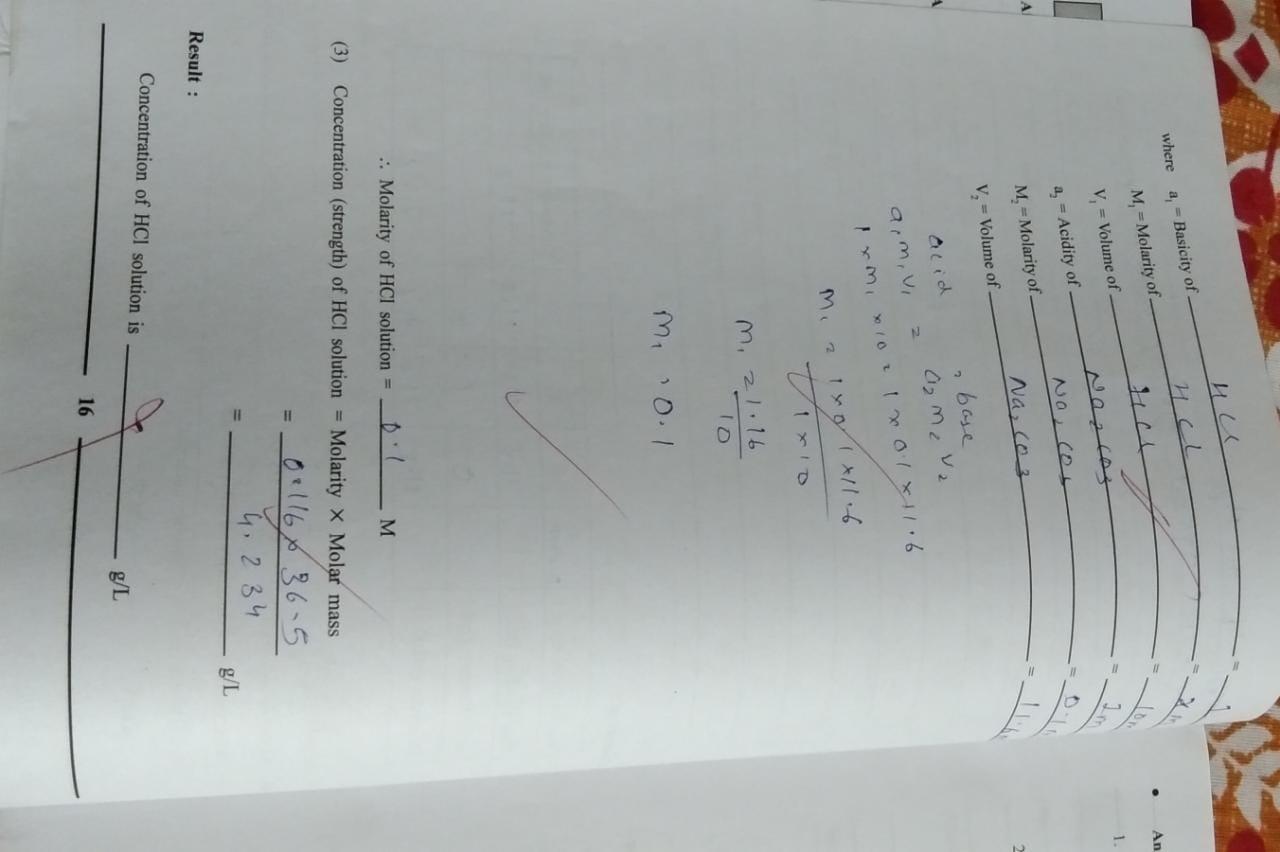 where a₁ = Basicity of HCl = 1
M₁ = Molarity of HCl =
V₁ = Volume of HCl = 10
a₂ = Acidity of Na₂CO₃ =
M₂ = Molarity of Na₂CO₃ = 0.1
V₂ = Volume of Na₂CO₃ = 11.6
acid = base
a₁m₁v₁ = a₂m₂v₂
1 × m₁ × 10 = 1 × 0.1 × 11.6
m₁ = 1 × 0.1 × 11.6
1 × 10
m₁ = 1.16
10
m₁ = 0.1
∴ Molarity of HCl solution = 0.1 M
(3) Concentration (strength) of HCl solution = Molarity × Molar mass
= 0.116 × 36.5
= 4.234 g/L
Result :
Concentration of HCl solution is g/L
16
A
A
• An
1.
2